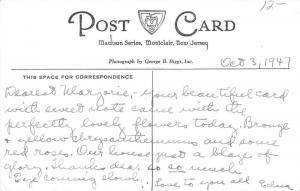 12-
POST CARD
Madison Series, Montclair, New Jersey
Photograph by George B. Biggs, Inc.
Oct 3, 1947
THIS SPACE FOR CORRESPONDENCE
Dearest Marjorie,- your beautiful card
with sweet note came with the
perfectly lovely flowers today. Bronze
+ yellow chrysanthemums and some
red roses. Our house just a blaze of
glory. Thanks dear, so so much
Eye coming slowly. Love to you all